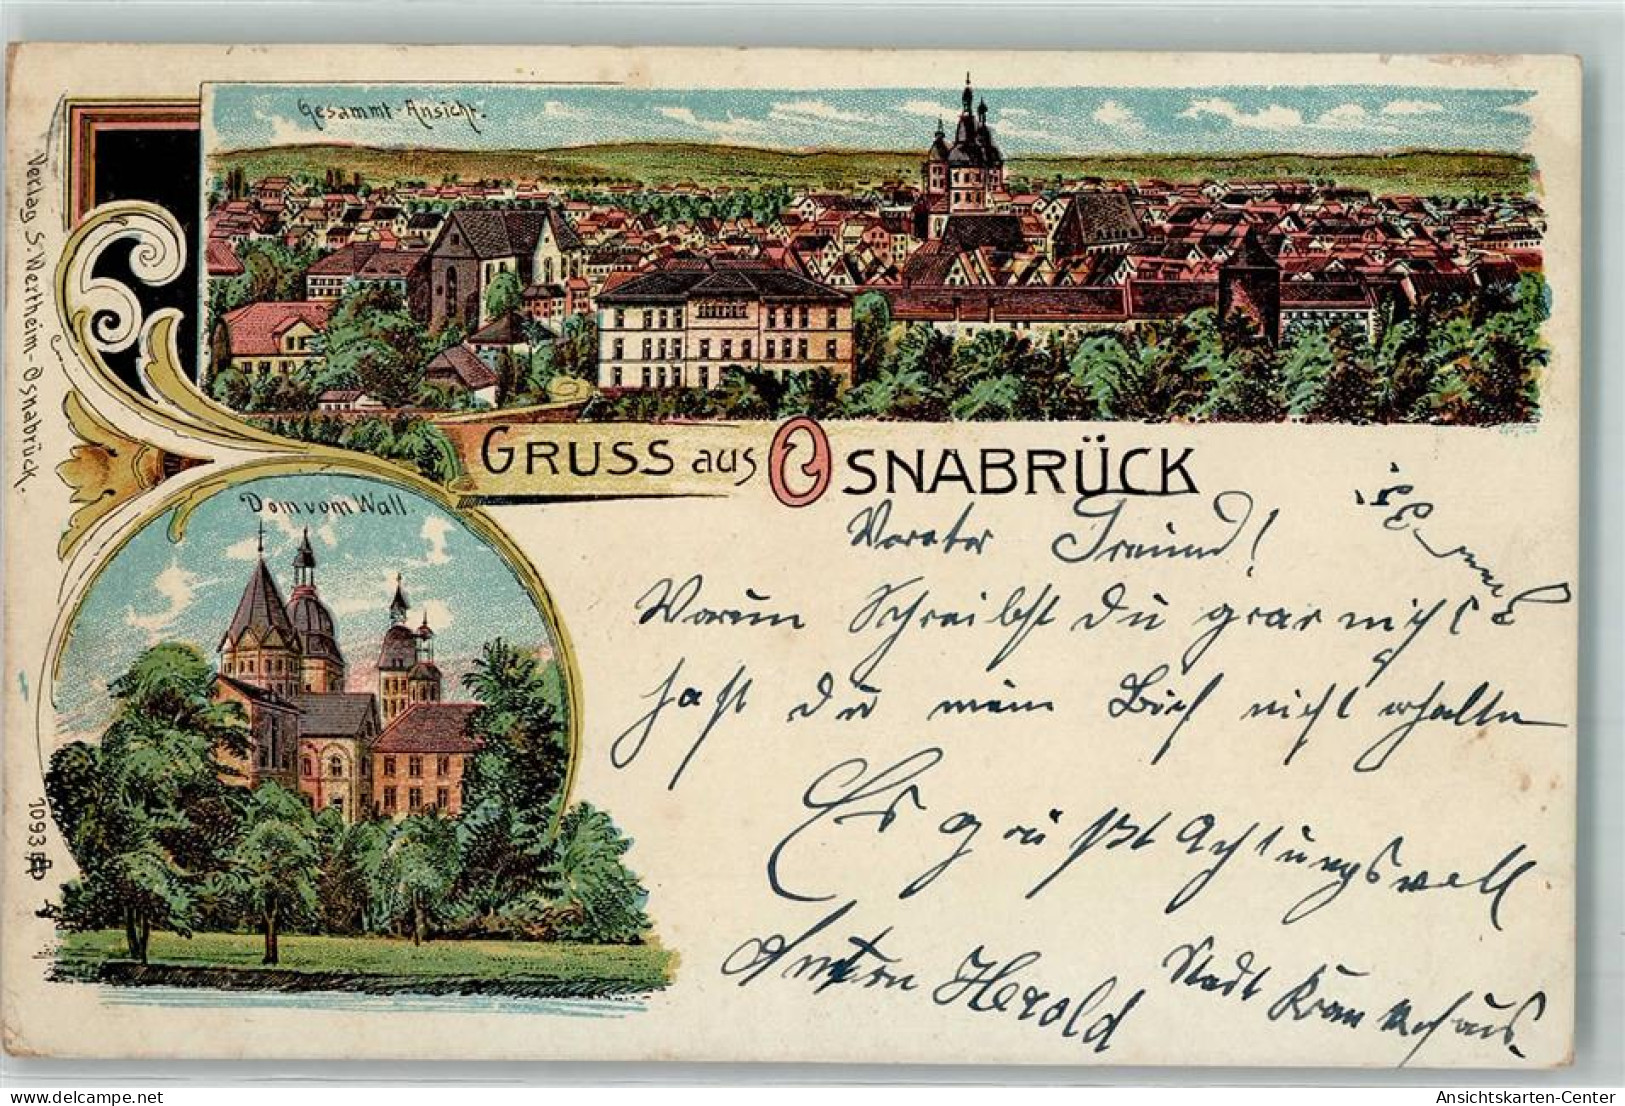 Gesammt-Ansicht.
Verlag S. Wertheim-Osnabrück.
GRUSS aus OSNABRÜCK
Dom vom Wall.
Werter Freund!
Warum Schreibst du gar nicht
hast du mein Brief nicht erhalten
Es grüßt Achtungsvoll
Anton Herold Stadt Krankenhaus.
10931
delcampe.net
Ansichtskarten-Center